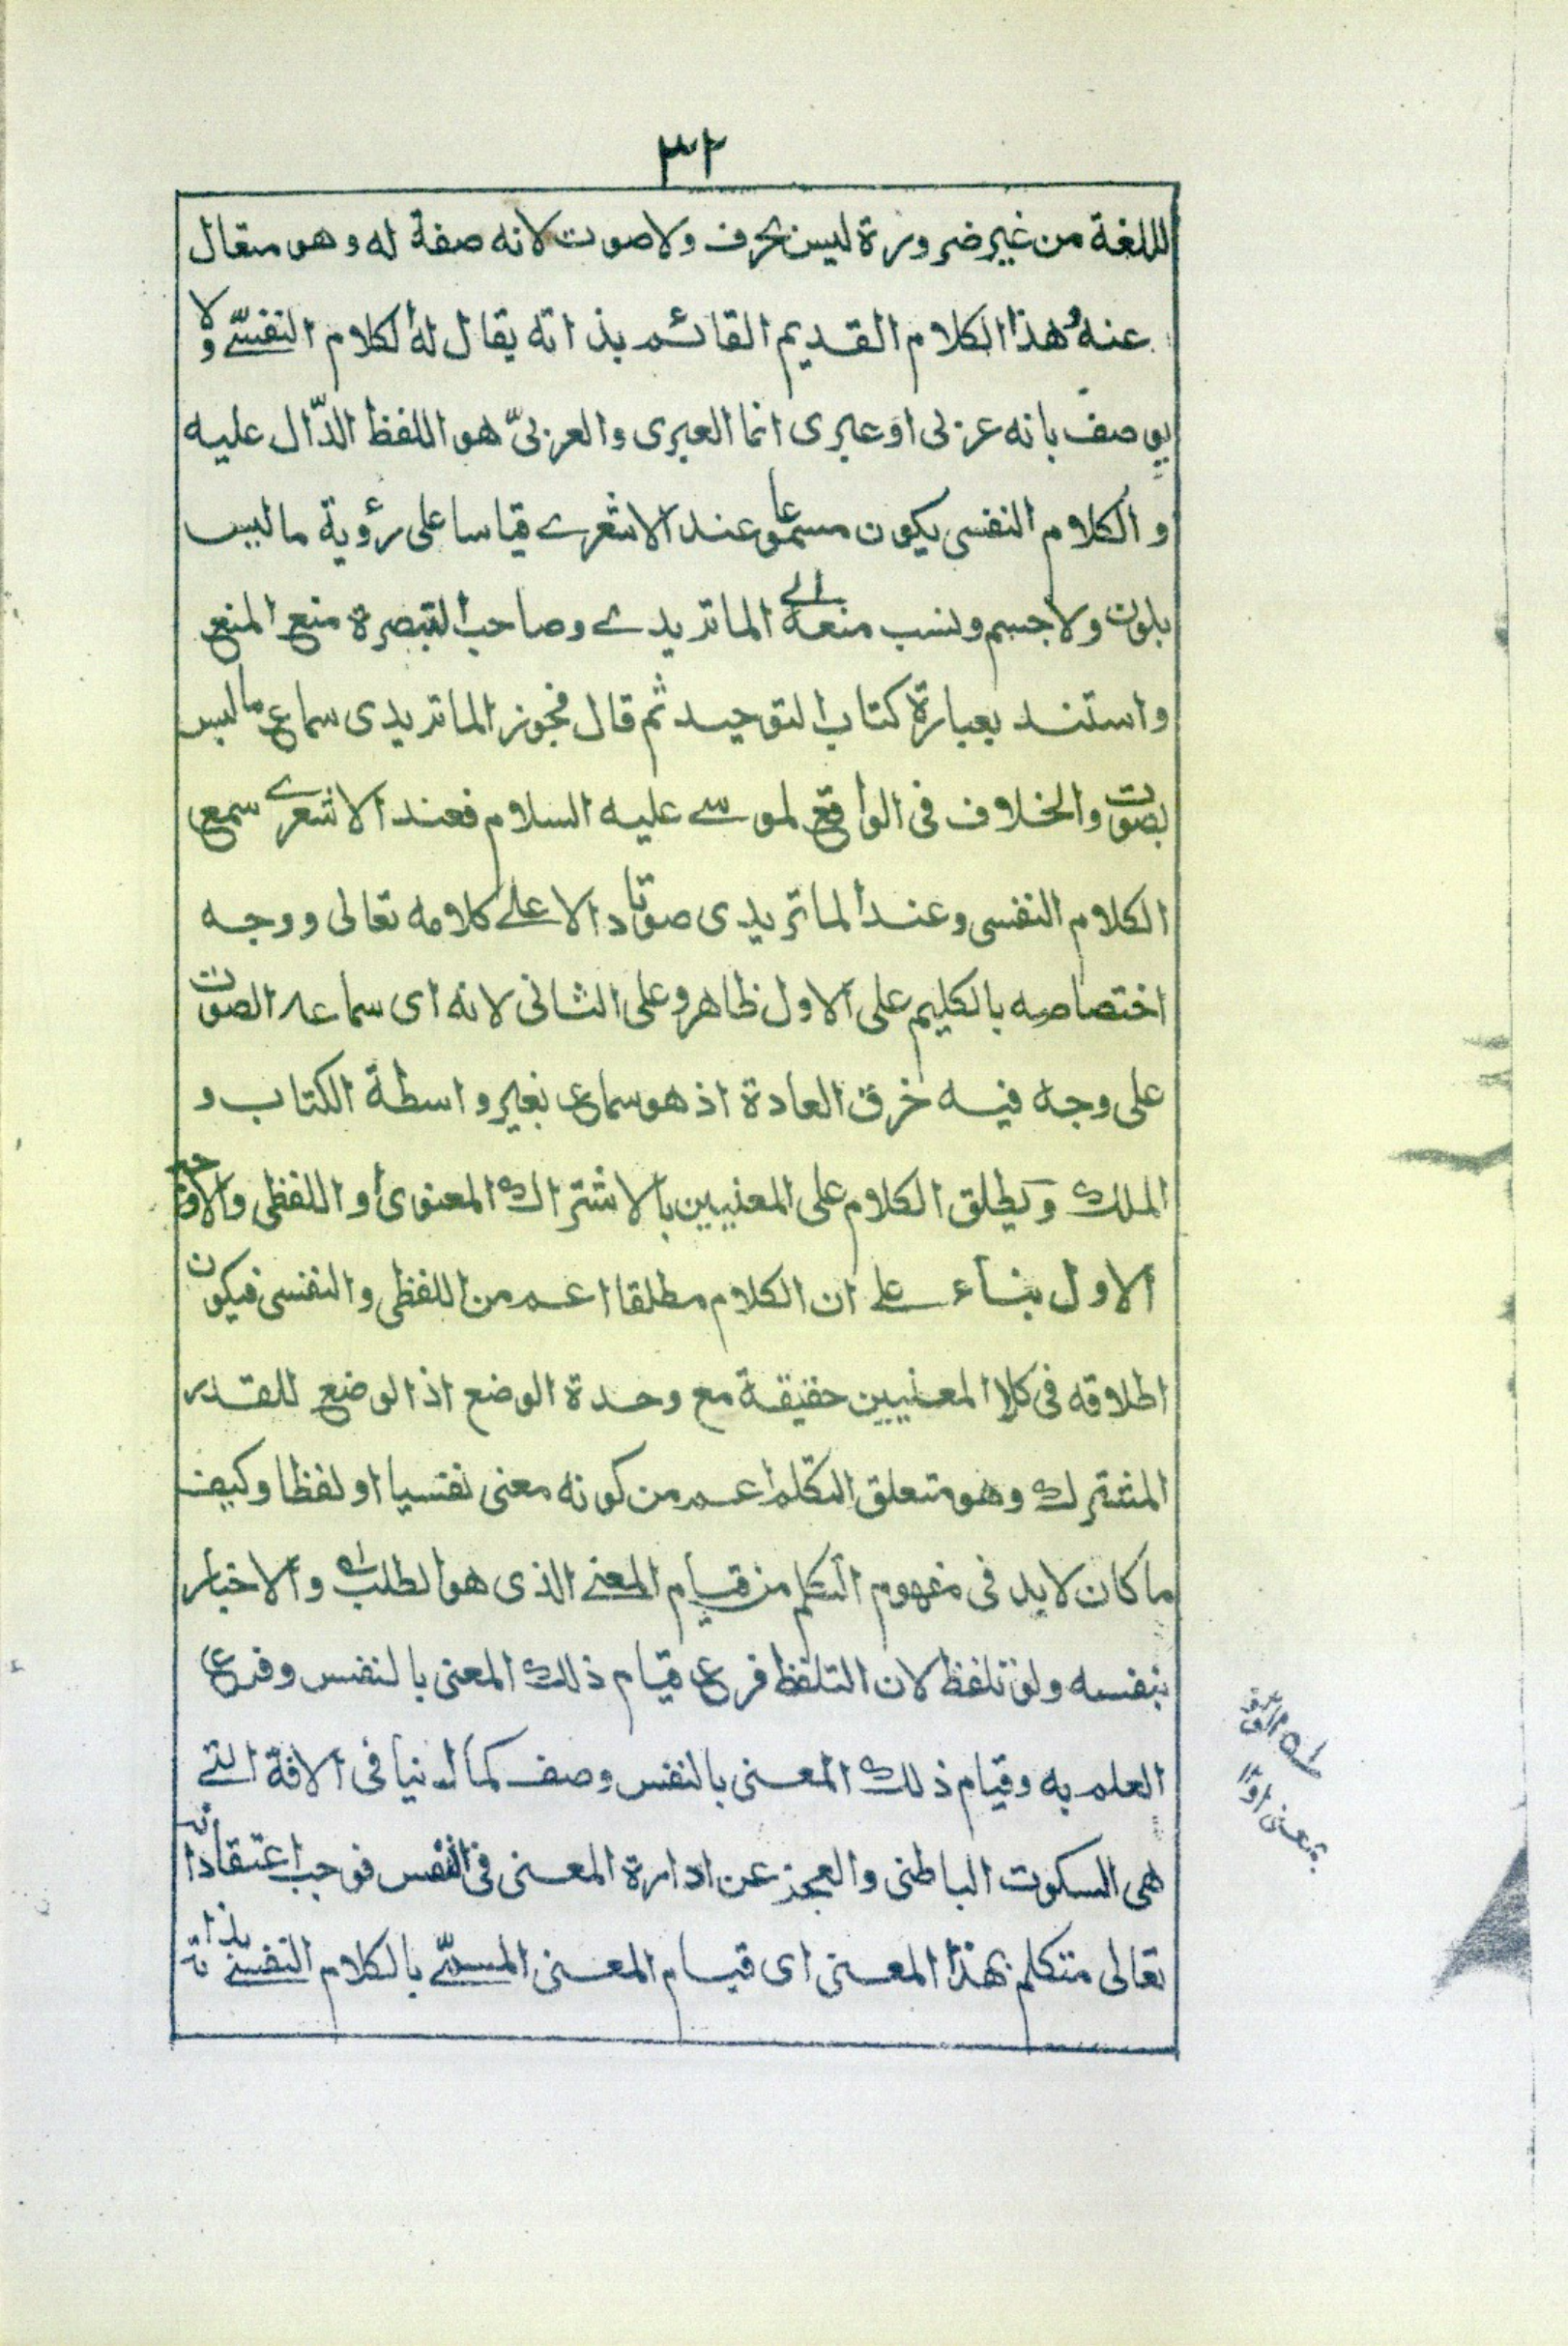 ٣٢
للغة من غير ضرورة ليس بحرف ولا صوت لانه صفة له وهو متعال
عنه وهذا الكلام القديم القائم بذاته يقال له الكلام النفسي ولا
يوصف بانه عربى او عبرى انما العبرى والعربىّ هو اللفظ الدّال عليه
والكلام النفسى يكون مسموعا عند الاشعرے قياسا على رؤية ما ليس
بلون ولا جسم ونسب منعه الى الماتريدے وصاحب التبصرة منع المنع
واستند بعبارة كتاب التوحيد ثم قال فجوز الماتريدى سماع ما ليس
بصوت والخلاف فى الواقع لموسے عليه السلام فعند الاشعرے سمع
الكلام النفسى وعند الماتريدى صوتا دالا علے كلامه تعالى ووجه
اختصاصه بالكليم على الاول ظاهر وعلى الثانى لانه اى سماعه الصوت
على وجه فيه خرق العادة اذ هو سماع بغير واسطة الكتاب و
الملك ويطلق الكلام على المعنيين بالاشتراك المعنوى او اللفظى والاوجه
الاول بناء علے ان الكلام مطلقا اعم من اللفظى والنفسى فيكون
اطلاقه فى كلا المعنيين حقيقة مع وحدة الوضع اذ الوضع للقدر
المشترك وهو متعلق التكلم اعم من كونه معنى نفسيا او لفظا وكيف
ما كان لابد فى مفهوم التكلم من قيام المعنے الذى هو الطلب والاخبار
بنفسه ولو تلفظ لان التلفظ فرع قيام ذلك المعنى بالنفس وفرع
العلم به وقيام ذلك المعنى بالنفس وصف كمال ينافى الافة التے
هى السكوت الباطنى والعجز عن ادارة المعنى فى النفس فوجب اعتقاد انه
تعالى متكلم بهذا المعنى اى قيام المعنى المسمّے بالكلام النفسے بذاته
بمعنى اوّلا